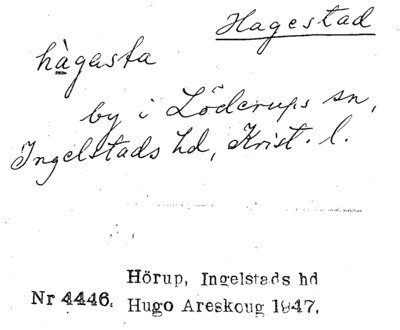 Hagestad
hàgasta
by i Löderups sn,
Ingelstads hd, Krist. l.
Hörup, Ingelstads hd
Nr 4446. Hugo Areskoug 1947.